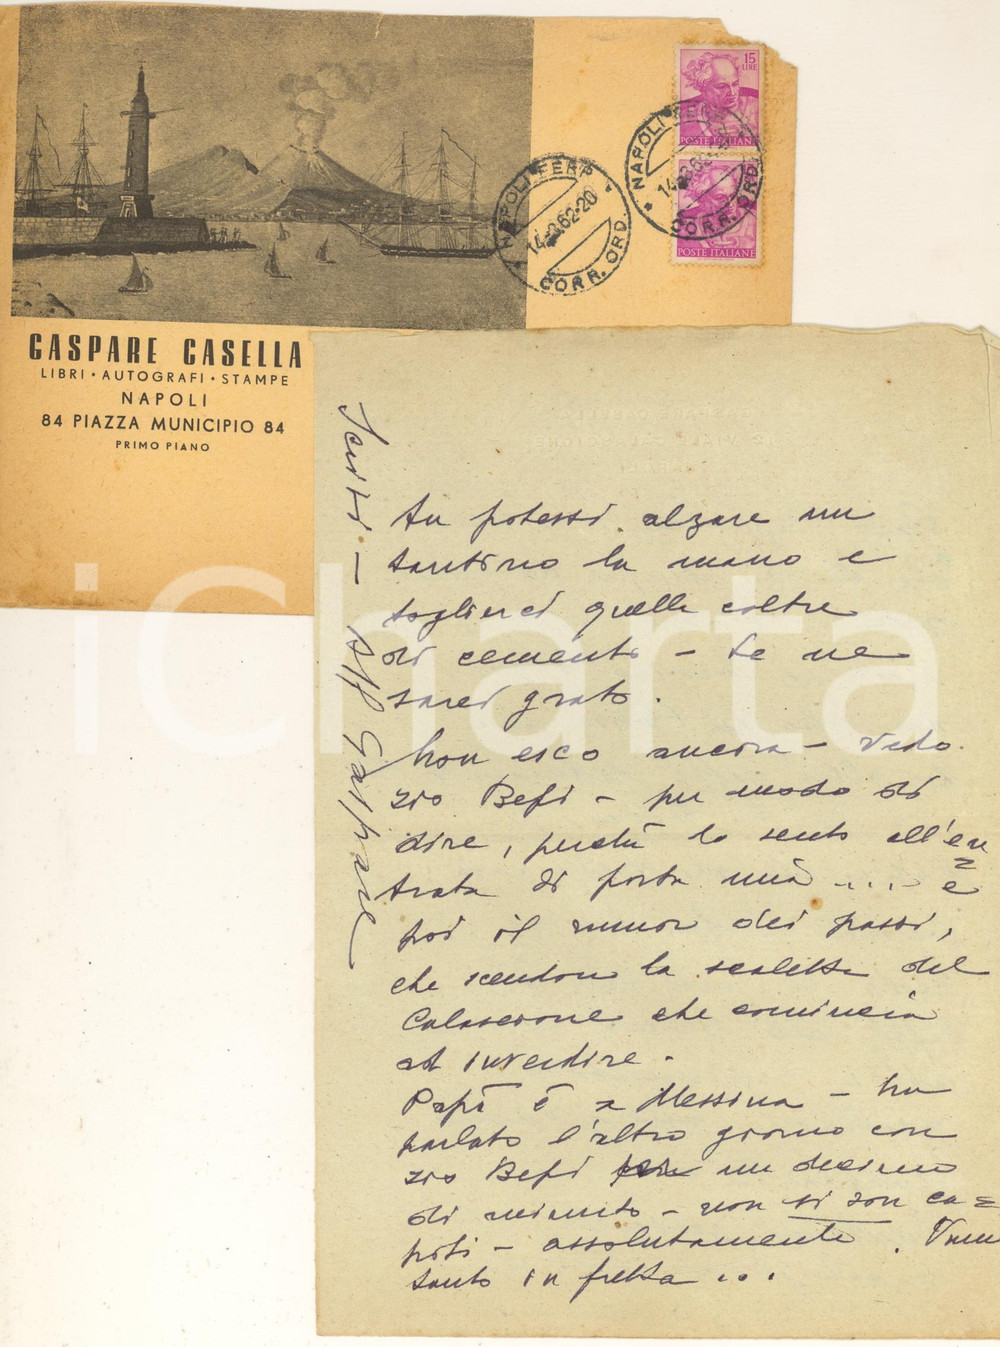 15
LIRE
POSTE ITALIANE
POSTE ITALIANE
NAPOLI FERR.
14-3.62-20
CORR. ORD.
NAPOLI FERR.
CORR. ORD.
GASPARE CASELLA
LIBRI • AUTOGRAFI • STAMPE
NAPOLI
84 PIAZZA MUNICIPIO 84
PRIMO PIANO
Tu potessi alzare un
tantino la mano e
toglierci quella coltre
di cemento – te ne
sarei grato.
Non esco ancora – Vedo
zio Befi – per modo di
dire, perché lo sento all'en
trata di porta mia .... è
poi il rumor dei passi,
che scendon la scaletta del
Calascione che comincia
ad inverdire.
Papà è a Messina – ha
parlato l'altro giorno con
zio Befi un decimo
di minuto – non si son ca=
piti – assolutamente.
tanto in fretta ...
Scrivi – Aff Gaspare
iCharta